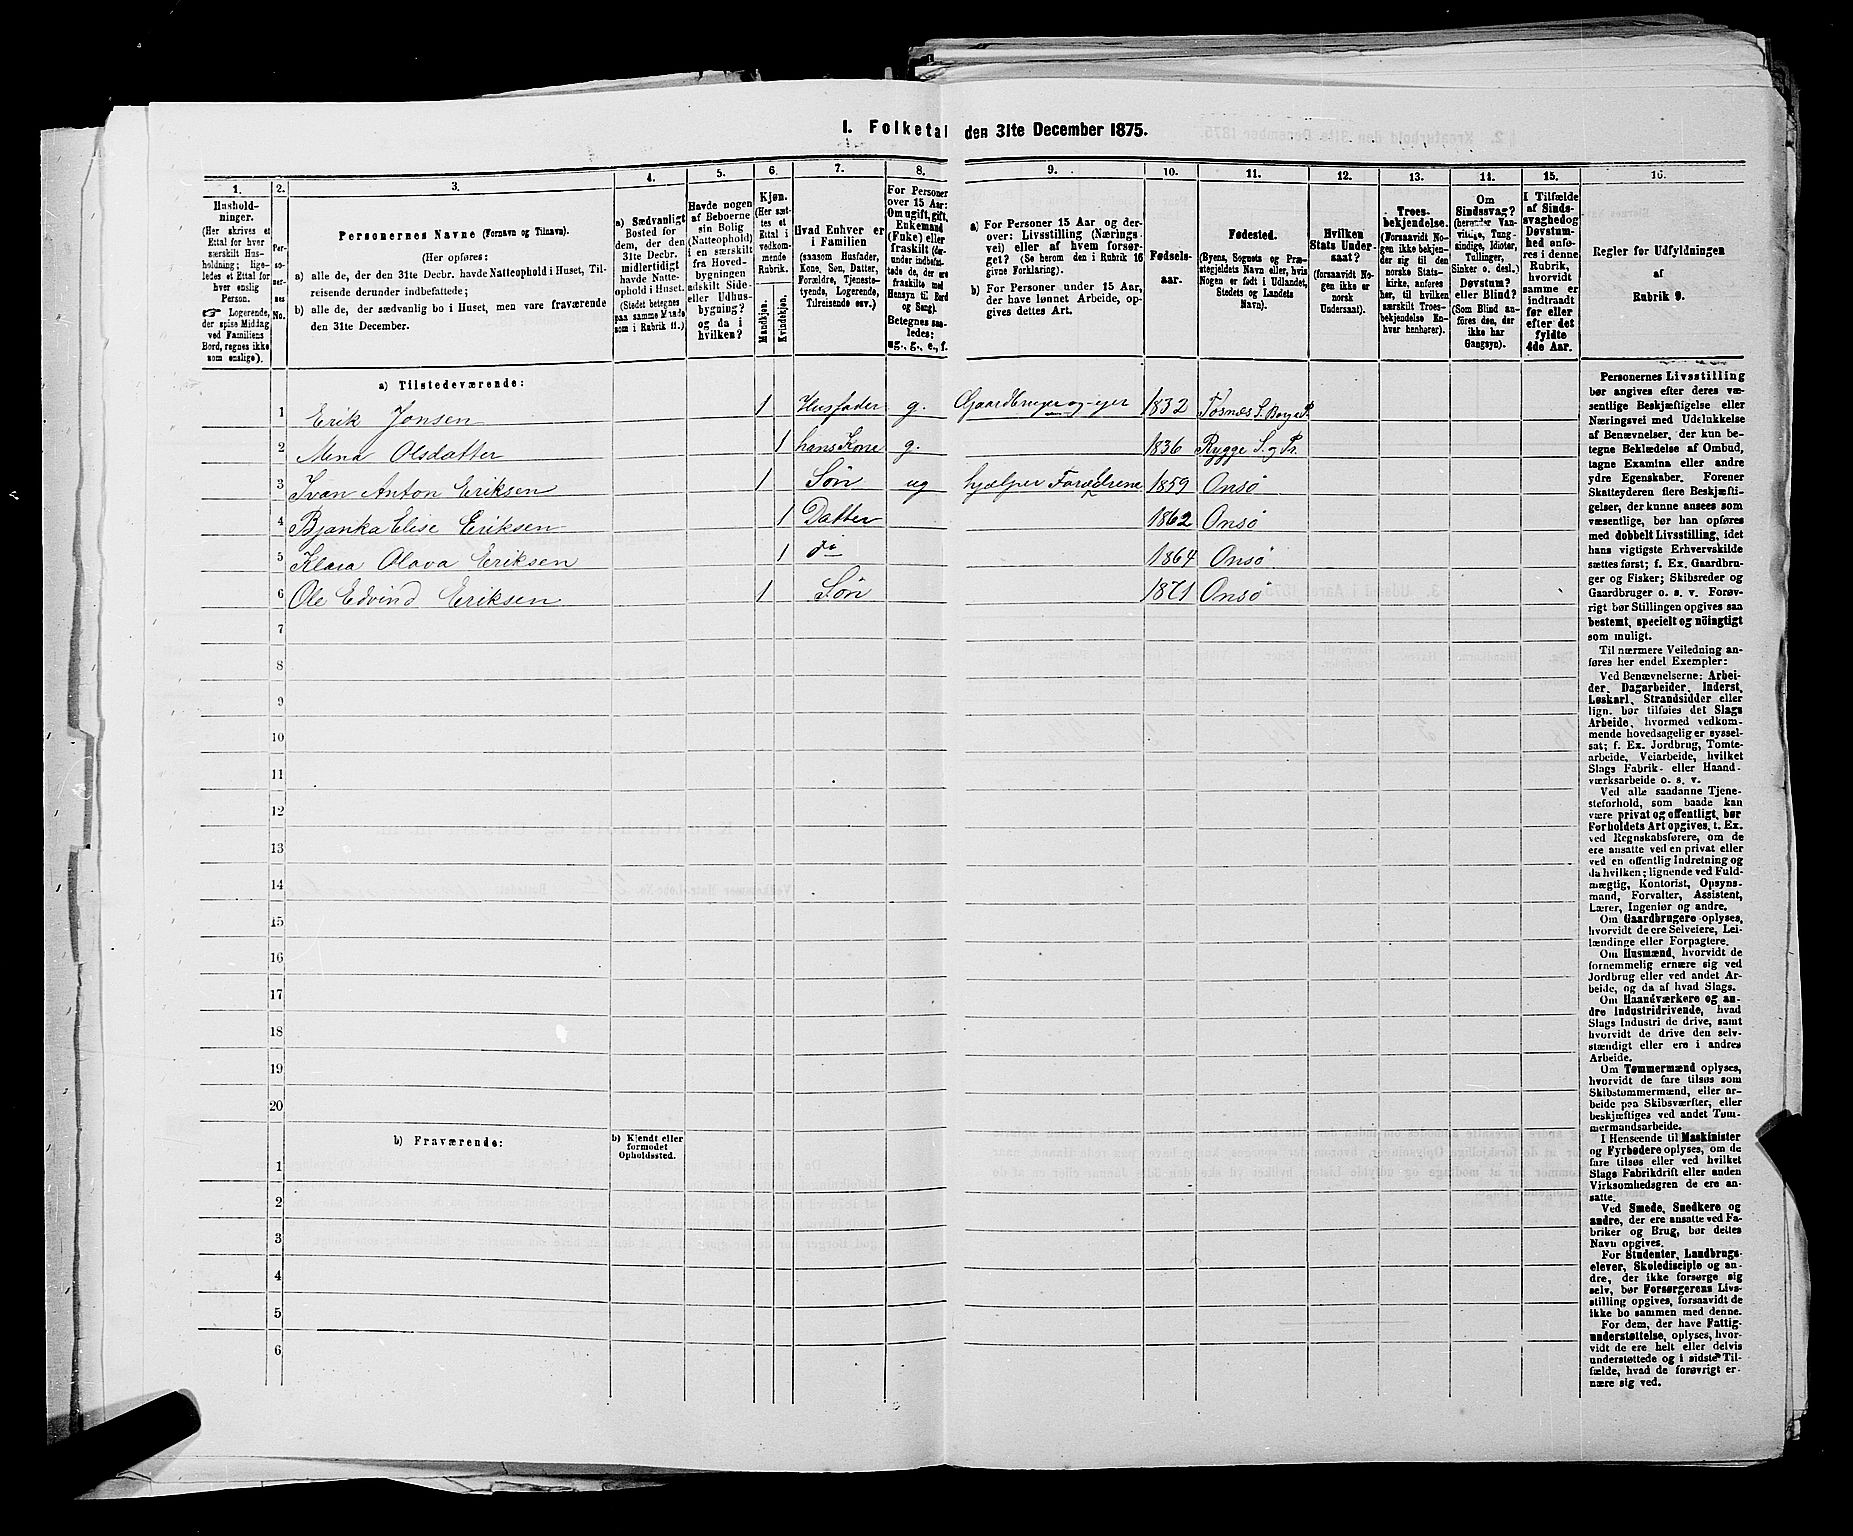 I. Folketal den 31te December 1875.
1. 2. 3. 4. 5. 6. 7. 8. 9. 10. 11. 12. 13. 14. 15. 16.
Hushold-
ninger.
(Her skrives et
Ettal for hver
særskilt Hus-
holdning; lige-
ledes et Ettal for
hver enslig
Person.
☞ Logerende,
der spise Middag
ved Familiens
Bord, regnes ikke
som enslige).
Per-
so-
ner-
nes
No.
Personernes Navne (Fornavn og Tilnavn).
(Her opføres:
a) alle de, der den 31te Decbr. havde Natteophold i Huset, Til-
reisende derunder indbefattede;
b) alle de, der sædvanlig bo i Huset, men vare fraværende
den 31te December.
a) Sædvanligt
Bosted for
dem, der den
31te Decbr.
midlertidigt
havde Natte-
ophold i Huset.
(Stedet betegnes
paa samme Maade
som i Rubrik 11.)
Havde nogen
af Beboerne
sin Bolig
(Natteophold)
i en særskilt
fra Hoved-
bygningen
adskilt Side-
eller Udhus-
bygning?
og da i
hvilken?
Kjøn.
(Her sæt-
tes et
Ettal i
vedkom-
mende
Rubrik.
Mandkjøn.
Kvindekjøn.
Hvad Enhver er
i Familien
(saasom Husfader,
Kone, Søn, Datter,
Forældre, Tjeneste-
tyende, Logerende,
Tilreisende osv.)
For Personer
over 15 Aar:
Om ugift, gift,
Enkemand
(Enke) eller
fraskilt (der-
under indbefat-
tede de, der ere
fraskilte med
Hensyn til Bord
og Seng).
Betegnes saa-
ledes:
ug., g., e., f.
a) For Personer 15 Aar og der-
over: Livsstilling (Nærings-
vei) eller af hvem forsør-
get? (Se herom den i Rubrik 16
givne Forklaring).
b) For Personer under 15 Aar,
der have lønnet Arbeide, op-
gives dettes Art.
Fødsels-
aar.
Fødested.
(Byens, Sognets og Præ-
stegjeldets Navn eller, hvis
Nogen er født i Udlandet,
Stedets og Landets
Navn).
Hvilken
Stats Under-
saat?
(forsaavidt No-
gen ikke er
norsk
Undersaat).
Troes-
bekjendelse.
(Forsaavidt No-
gen ikke bekjen-
der sig til den
norske Stats-
kirke, anføres
her, til hvilken
særskilt Troes-
bekjendelse En-
hver henhører).
Om
Sindssvag?
(herunder Van-
vittige, Tung-
sindige, Idioter,
Tullinger,
Sinker o. desl.)
Døvstum?
eller Blind?
(Som Blind an-
føres den, der
ikke har
Gangsyn).
I Tilfælde
af Sinds-
svaghed og
Døvstum-
hed anfø-
res i denne
Rubrik,
hvorvidt
samme er
indtraadt
før eller
efter det
fyldte
4de Aar.
Regler for Udfyldningen
af
Rubrik 9.
a) Tilstedeværende:
1 Erik Jonsen 1 Husfader g. Gaardbruger og -ejer 1832 Fosnes S. Borge P.
2 Mina Olsdatter 1 hans Kone g. 1836 Rygge S. og Pr.
3 Ivan Anton Eriksen 1 Søn ug hjælper Forældrene 1859 Onsø
4 Bjanka Elise Eriksen 1 Datter 1862 Onsø
5 Klara Olava Eriksen 1 do 1864 Onsø
6 Ole Edvind Eriksen 1 Søn 1871 Onsø
7
8
9
10
11
12
13
14
15
16
17
18
19
20
b) Fraværende:
b) Kjendt eller
formodet
Opholdssted.
1
2
3
4
5
6
Personernes Livsstilling
bør angives efter deres væ-
sentlige Beskjæftigelse eller
Næringsvei med Udelukkelse
af Benævnelser, der kun be-
tegne Beklædelse af Ombud,
tagne Examina eller andre
ydre Egenskaber. Forener
Skatteyderen flere Beskjæfti-
gelser, der kunne ansees som
væsentlige, bør han opføres
med dobbelt Livsstilling, idet
hans vigtigste Erhvervskilde
sættes først; f. Ex. Gaardbru-
ger og Fisker; Skibsreder og
Gaardbruger o. s. v. Forøv-
rigt bør Stillingen opgives saa
bestemt, specielt og nöiagtigt
som muligt.
Til nærmere Veiledning an-
føres her endel Exempler:
Ved Benævnelserne: Arbei-
der, Dagarbeider, Inderst,
Løskarl, Strandsidder eller
lign. bør tilføies det Slags
Arbeide, hvormed vedkom-
mende hovedsagelig er syssel-
sat; f. Ex. Jordbrug, Tomte-
arbeide, Veiarbeide, hvilket
Slags Fabrik- eller Haand-
værksarbeide o. s. v.
Ved alle saadanne Tjene-
steforhold, som baade kan
være privat og offentligt, bør
Forholdets Art opgives, t. Ex.
ved Regnskabsførere, om de
ere ansatte ved en privat eller
ved en offentlig Indretning og
da hvilken; lignende ved Fuld-
mægtig, Kontorist, Opsyns-
mand, Forvalter, Assistent,
Lærer, Ingeniør og andre.
Om Gaardbrugere oplyses,
hvorvidt de ere Selveiere, Lei-
lændinge eller Forpagtere.
Om Husmænd, hvorvidt de
fornemmelig ernære sig ved
Jordbrug eller ved andet Ar-
beide, og da af hvad Slags.
Om Haandværkere og an-
dre Industridrivende, hvad
Slags Industri de drive, samt
hvorvidt de drive den selv-
stændigt eller ere i andres
Arbeide.
Om Tømmermænd oplyses,
hvorvidt de fare tilsøs som
Skibstømmermænd, eller ar-
beide paa Skibsværfter, eller
beskjæftiges ved andet Tøm-
mermandsarbeide.
I Henseende til Maskinister
og Fyrbødere oplyses, om de
fare tilsøs eller ved hvilket
Slags Fabrikdrift eller anden
Virksomhedsgren de ere an-
satte.
Ved Smede, Snedkere og
andre, der ere ansatte ved Fa-
briker og Brug, bør dettes
Navn opgives.
For Studenter, Landbrugs-
elever, Skoledisciple og an-
dre, der ikke forsørge sig
selv, bør Forsørgerens Livs-
stilling opgives, forsaavidt de
ikke bo sammen med denne.
For dem, der have Fattig-
understøttelse, oplyses, hvor-
vidt de ere helt eller delvis
understøttede og i sidste Til-
fælde, hvad de forøvrigt er-
nære sig ved.